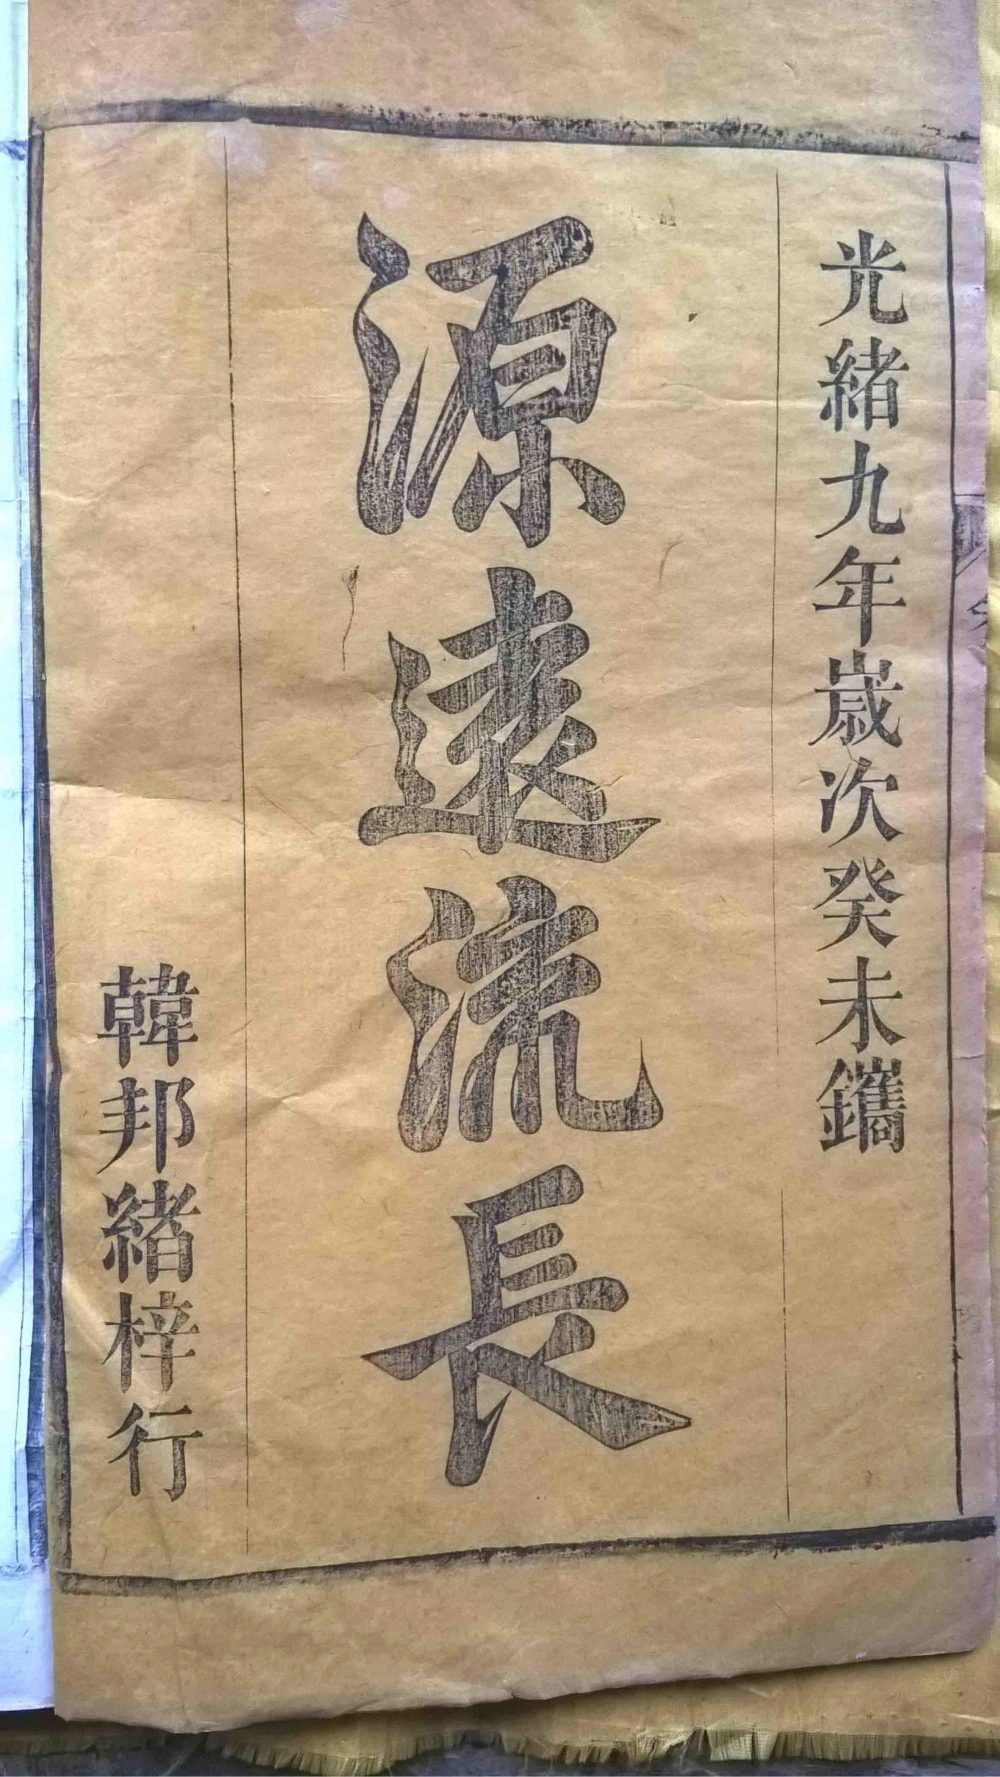 光緒九年歲次癸未鐫
源遠流長
韓邦緒梓行